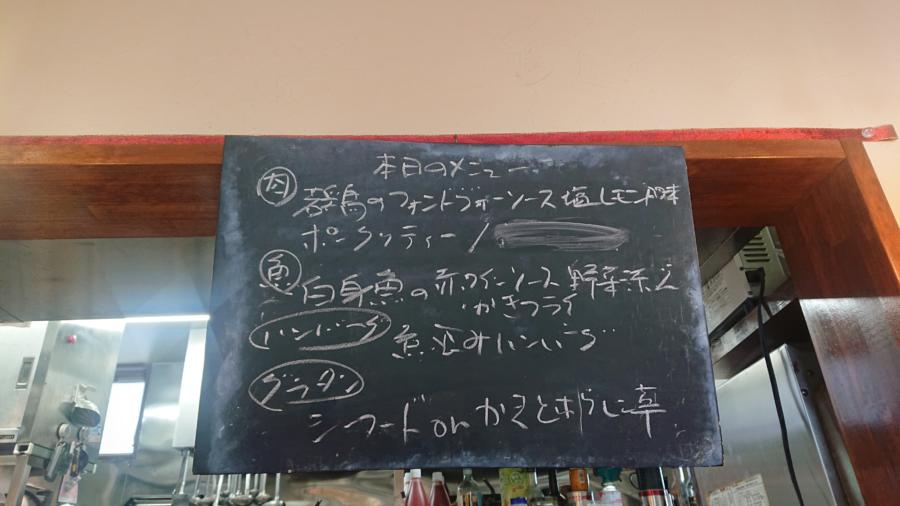 本日のメニュー
肉
鶏のフォンドヴォーソース塩レモン風味
ポークソティー/
魚
白身魚の赤ワインソース野菜添え
かきフライ
ハンバーグ
煮込みハンバーグ
グラタン
シーフードorかきとほうれん草